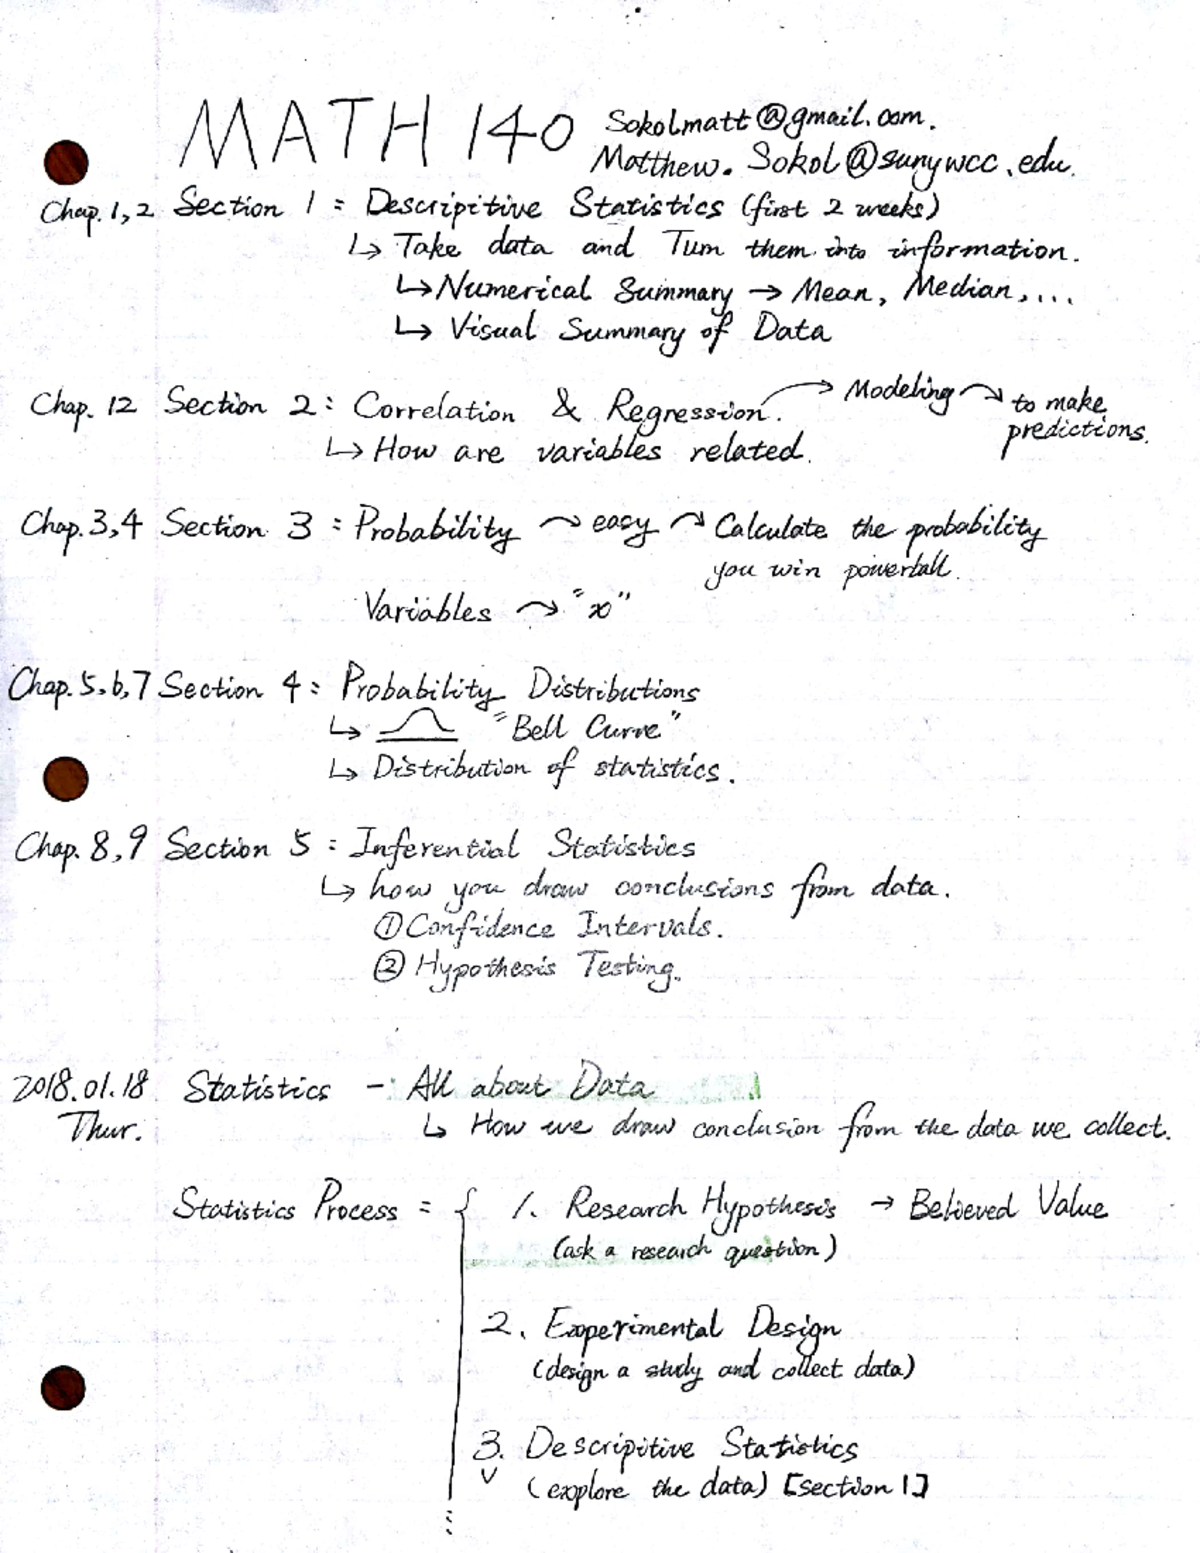 MATH 140 Sokolmatt@gmail.com.
Matthew.Sokol@sunywcc.edu.
Chap.1,2 Section 1 : Descripitive Statistics (first 2 weeks)
↳ Take data and Turn them into information.
↳ Numerical Summary → Mean, Median,...
↳ Visual Summary of Data
Chap. 12 Section 2 : Correlation & Regression. → Modeling → to make predictions.
↳ How are variables related.
Chap.3,4 Section 3 : Probability → easy → Calculate the probability
you win powerball.
Variables → "x"
Chap.5,6,7 Section 4 : Probability Distributions
↳ "Bell Curve"
↳ Distribution of statistics.
Chap.8,9 Section 5 : Inferential Statistics
↳ how you draw conclusions from data.
① Confidence Intervals.
② Hypothesis Testing.
2018.01.18 Statistics - All about Data
Thur. ↳ How we draw conclusion from the data we collect.
Statistics Process = { 1. Research Hypothesis → Believed Value
(ask a research question)
2. Experimental Design
(design a study and collect data)
3. Descripitive Statistics
(explore the data) [section 1]